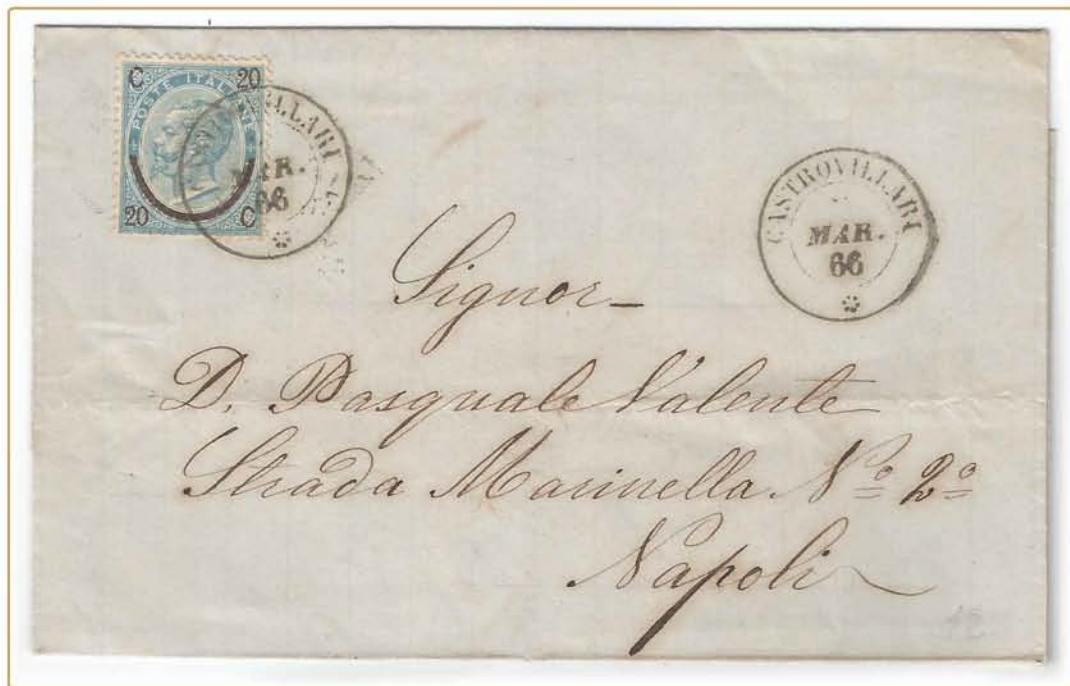 C 20
POSTE ITALIANE
20 C
CASTROVILLARI
MAR.
66
CASTROVILLARI
MAR.
66
Signor
D. Pasquale Valente
Strada Marinella Nº 2º
Napoli